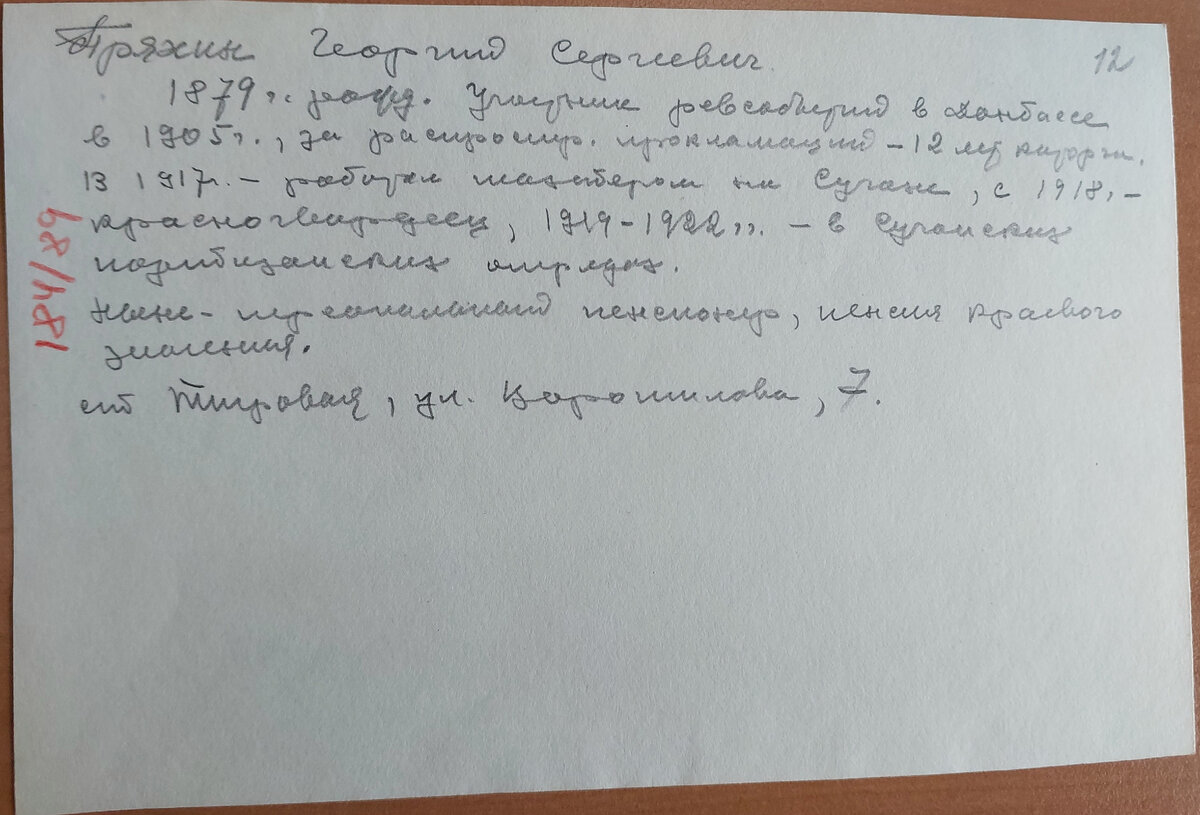 Пряхин Георгий Сергиевич.
12
1879 г. рожд. Участник ревсобытий в Донбассе
в 1905 г., за распростр. прокламаций - 12 лет каторги.
В 1917 г. - работал шахтером на Сучане, с 1918. -
красногвардеец, 1919-1922 гг. - в Сучанских
партизанских отрядах.
Ныне - персональный пенсионер, пенсия краевого
значения.
ст Тигровая, ул. Ворошилова, 7.
184/89